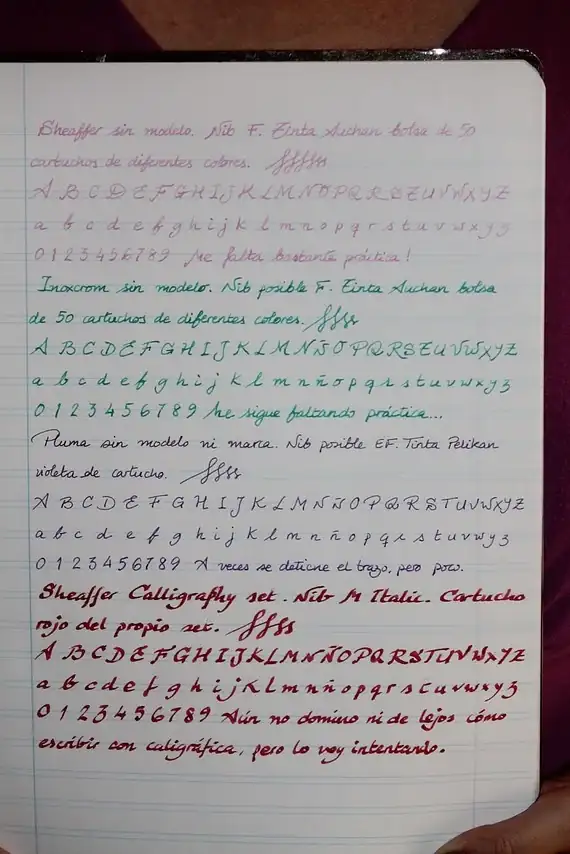 Sheaffer sin modelo. Nib F. Tinta Auchan bolsa de 50
cartuchos de diferentes colores.
A B C D E F G H I J K L M N Ñ O P Q R S T U V W X Y Z
a b c d e f g h i j k l m n o p q r s t u v w x y z
0 1 2 3 4 5 6 7 8 9 Me falta bastante práctica!
Inoxcrom sin modelo. Nib posible F. Tinta Auchan bolsa
de 50 cartuchos de diferentes colores.
A B C D E F G H I J K L M N Ñ O P Q R S T U V W X Y Z
a b c d e f g h i j k l m n ñ o p q r s t u v w x y z
0 1 2 3 4 5 6 7 8 9 Me sigue faltando práctica...
Pluma sin modelo ni marca. Nib posible EF. Tinta Pelikan
violeta de cartucho.
A B C D E F G H I J K L M N Ñ O P Q R S T U V W X Y Z
a b c d e f g h i j k l m n ñ o p q r s t u v w y z
0 1 2 3 4 5 6 7 8 9 A veces se detiene el trazo, pero poco.
Sheaffer Calligraphy set. Nib M Italic. Cartucho
rojo del propio set.
A B C D E F G H I J K L M N Ñ O P Q R S T U V W X Y Z
a b c d e f g h i j k l m n ñ o p q r s t u v w x y z
0 1 2 3 4 5 6 7 8 9 Aún no domino ni de lejos cómo
escribir con caligráfica, pero lo voy intentando.